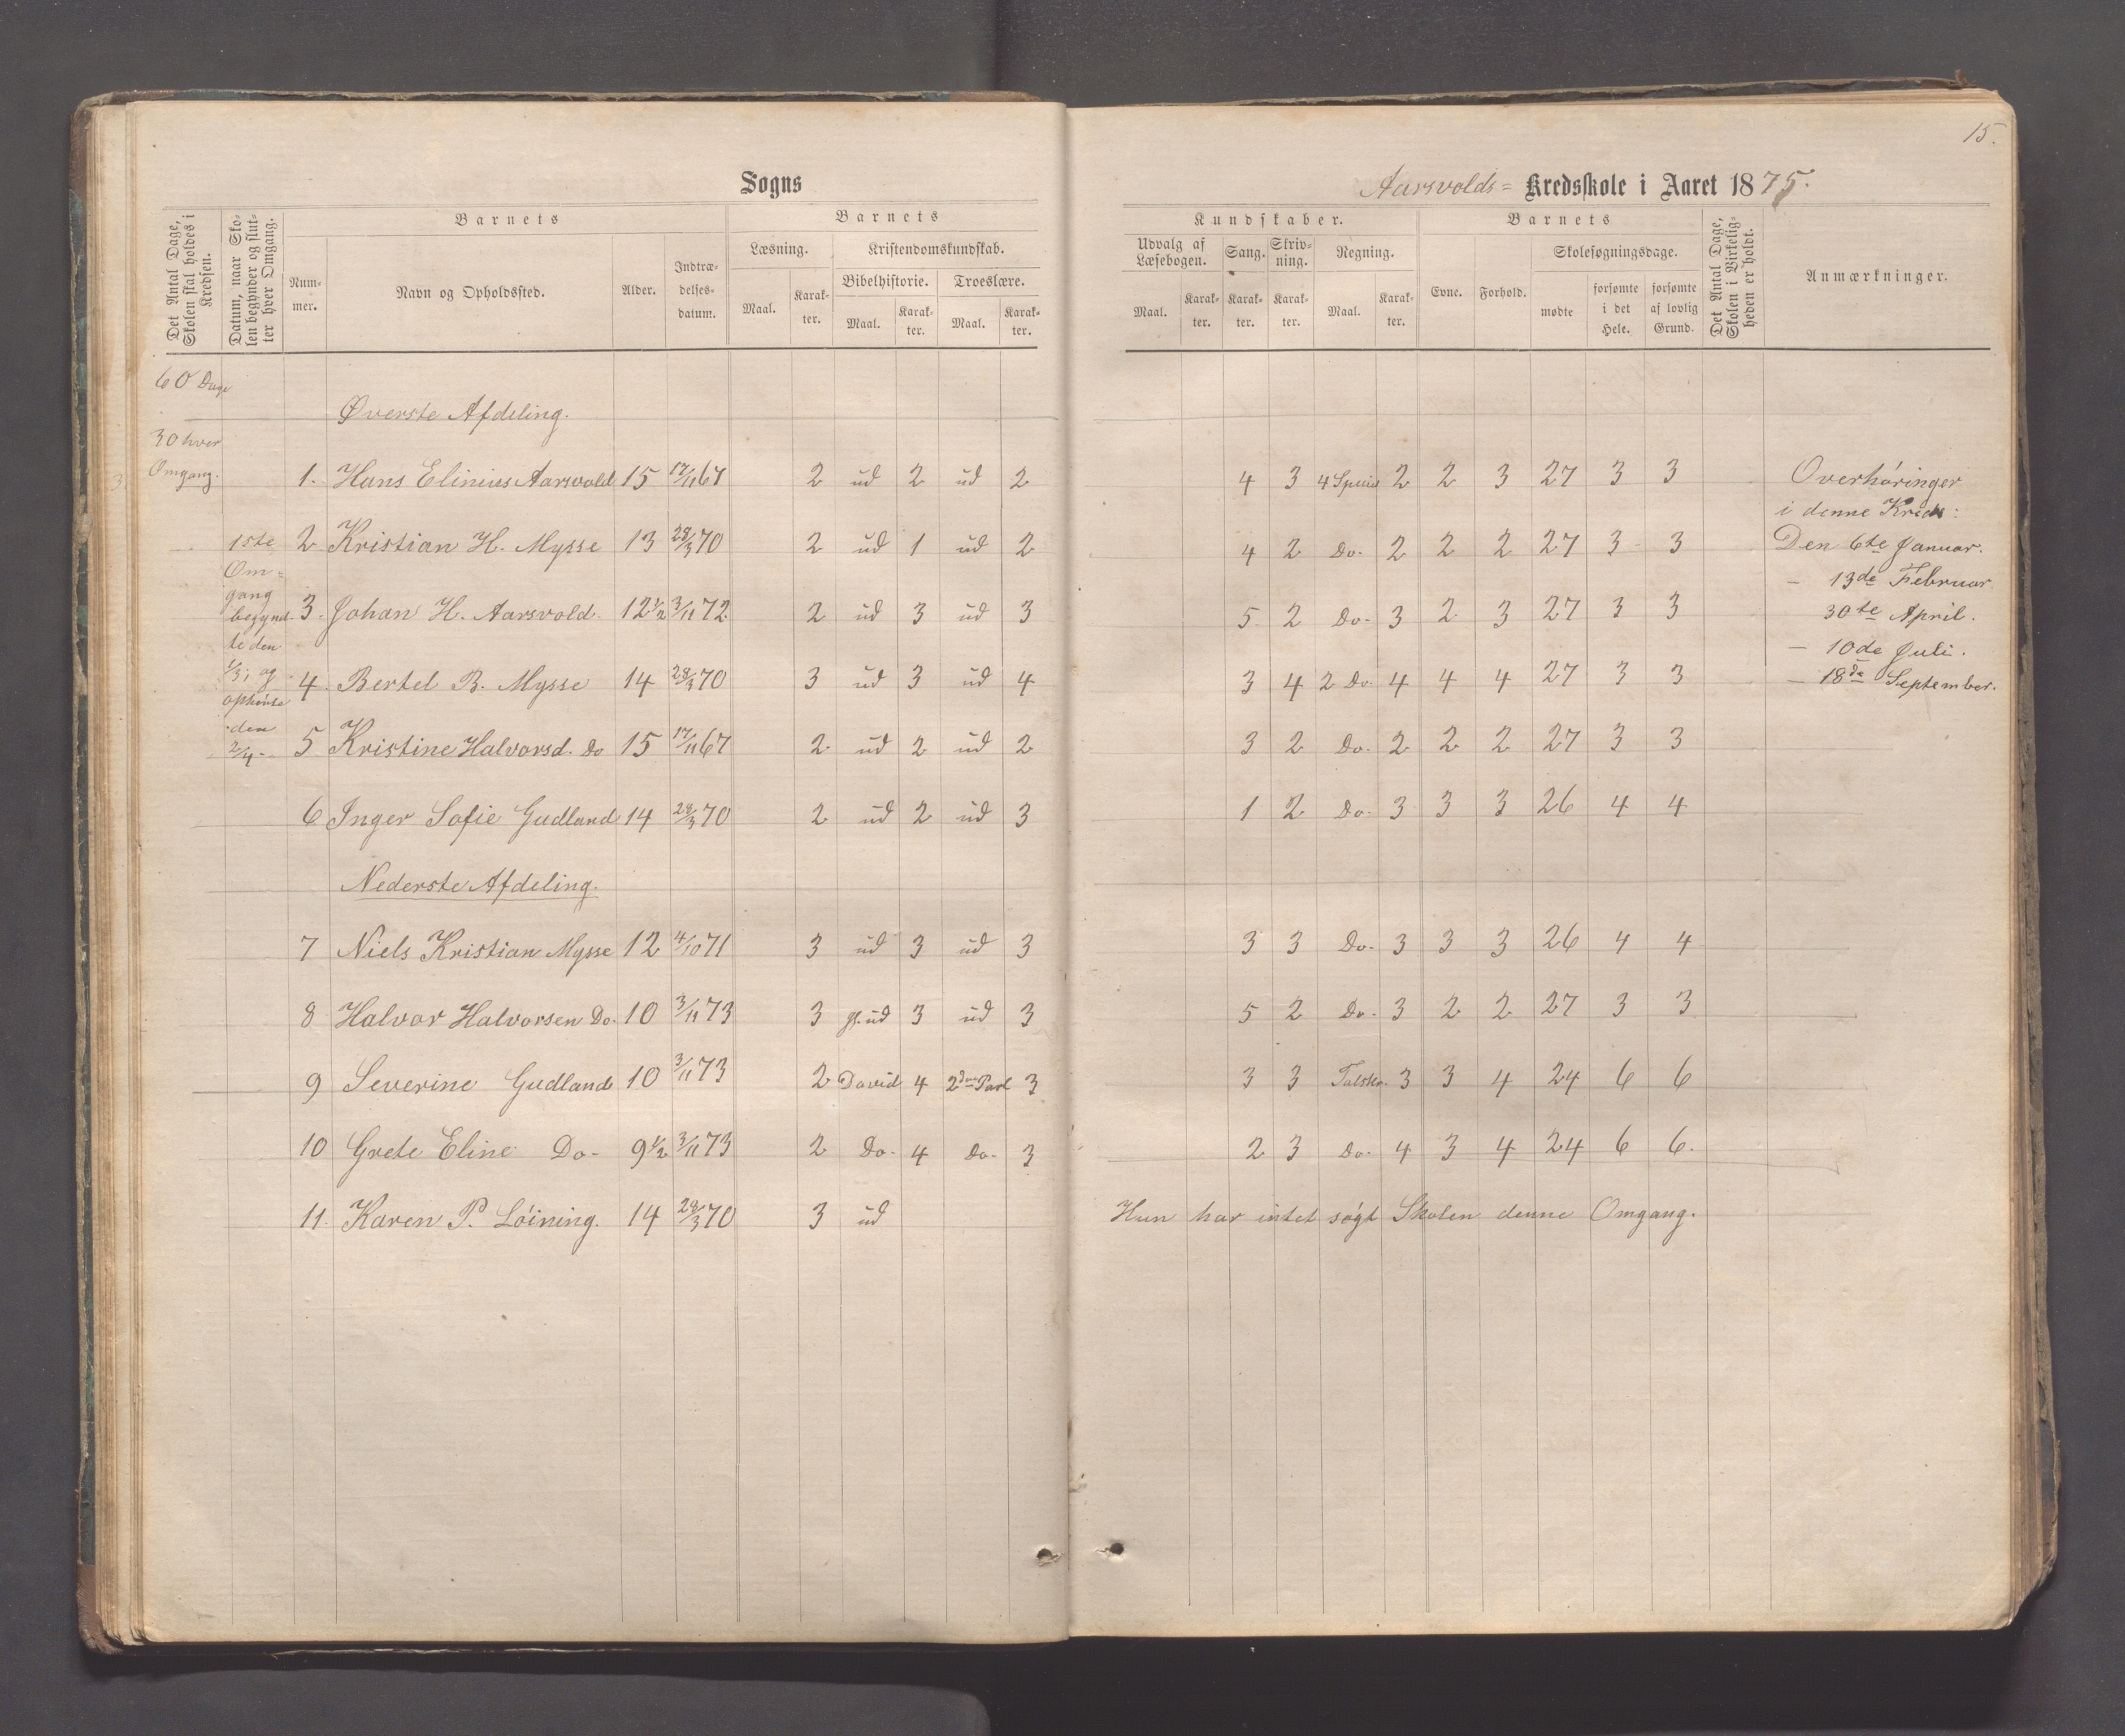 15.
Sogns
Aarsvolds= Kredsskole i Aaret 1875.
Det Antal Dage, Skolen skal holdes i Kredsen.
Datum, naar Skolen begynder og slutter hver Omgang.
Barnets
Nummer.
Navn og Opholdssted.
Alder.
Indtrædelsesdatum.
Barnets
Læsning.
Kristendomskundskab.
Bibelhistorie.
Troeslære.
Maal.
Karakter.
Maal.
Karakter.
Maal.
Karakter.
Kundskaber.
Udvalg af Læsebogen.
Sang.
Skrivning.
Regning.
Maal.
Karakter.
Karakter.
Karakter.
Maal.
Karakter.
Barnets
Evne.
Forhold.
Skolesøgningsdage.
mødte
forsømte i det Hele.
forsømte af lovlig Grund.
Det Antal Dage, Skolen i Virkeligheden er holdt.
Anmærkninger.
60 Dage
30 hver
Omgang.
1ste
Om=
gang
begynd
te den
1/3; og
ophørte
den
2/4
Øverste Afdeling.
1. Hans Elinius Aarsvold 15 17/11 67 2 ud 2 ud 2 4 3 4 Spied 2 2 3 27 3 3
2 Kristian H. Mysse 13 28/3 70 2 ud 1 ud 2 4 2 Do. 2 2 2 27 3 3
3. Johan H. Aarsvold. 12½ 3/11 72 2 ud 3 ud 3 5 2 Do. 3 2 3 27 3 3
4. Bertel B. Mysse 14 28/3 70 3 ud 3 ud 4 3 4 2 Do. 4 4 4 27 3 3
5 Kristine Halvorsd. Do 15 17/11 67 2 ud 2 ud 2 3 2 Do. 2 2 2 27 3 3
6 Inger Sofie Gudland 14 28/3 70 2 ud 2 ud 3 1 2 Do. 3 3 3 26 4 4
Nederste Afdeling.
7 Niels Kristian Mysse 12 4/10 71 3 ud 3 ud 3 3 3 Do. 3 3 3 26 4 4
8 Halvor Halvorsen Do. 10 3/11 73 3 gl. ud 3 ud 3 5 2 Do. 3 2 2 27 3 3
9 Severine Gudland 10 3/11 73 2 David 4 2den Parl 3 3 3 Talskr. 3 3 4 24 6 6
10 Grete Eline Do- 9½ 3/11 73 2 Do. 4 Do. 3 2 3 Do. 4 3 4 24 6 6.
11. Karen P. Löining. 14 28/3 70 3 ud Hun har intet søgt Skolen denne Omgang.
Overhöringer
i denne Kreds:
Den 6te Januar.
— 13de Februar
30te April.
— 10de Juli.
— 18de September.